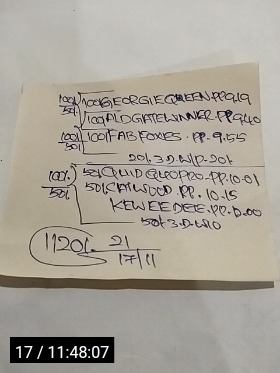 100/GEORGIEQUEEN.PP9.19
100/ALDGATEWINNER.PP9.40
100/FABFOXIES.PP.9.55
20/.3.D.W/P-20/-
QUIDQUOPRO-PP.10.01
50/KATWOOD.PP.10.15
KEWEEDEE.PP.
50/3.D.W/O
1120/.
21
17/11
17 / 11:48:07